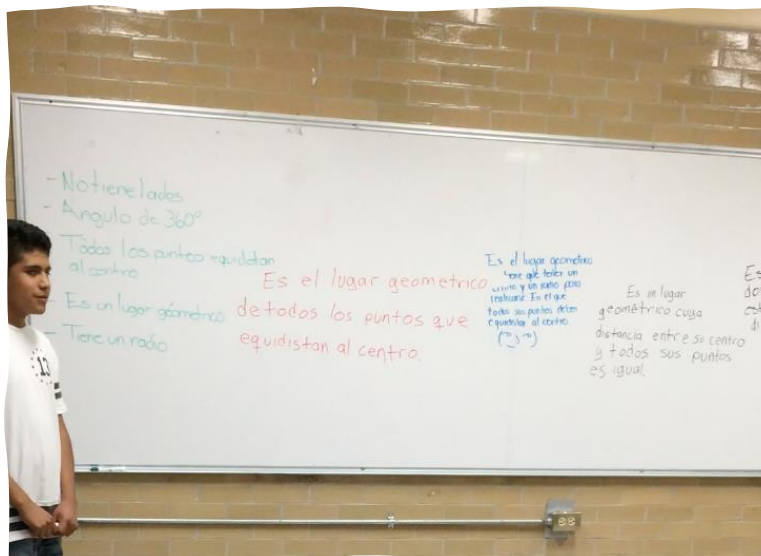 - No tiene lados
- Angulo de 360°
- Todos los puntos equidistan
al centro
- Es un lugar géometrico
- Tiene un radio
Es el lugar geometrico
de todos los puntos que
equidistan al centro.
Es el lugar geometrico
tiene que tener un
centro y un radio para
realizarse En el que
todos sus puntos deben
equidistar al centro.
Es un lugar
geométrico cuya
distancia entre su centro
y todos sus puntos
es igual.
Es
do
es
di
13